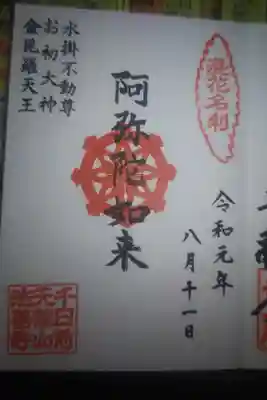 浪花名刹
令和元年
八月十一日
阿弥陀如来
水掛不動尊
お初大神
金毘羅天王
千日前
天龍山
法善寺